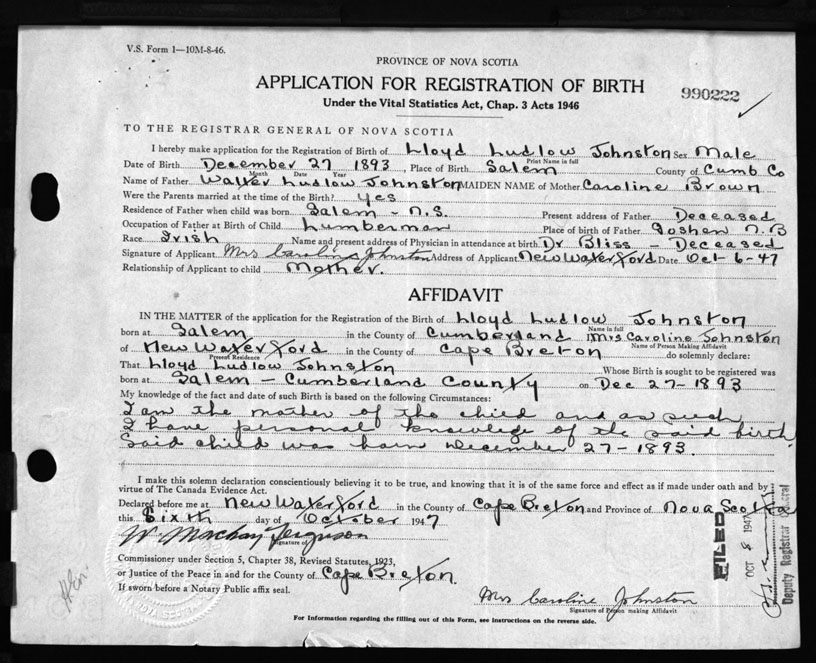 V.S. Form 1—10M-8-46.
PROVINCE OF NOVA SCOTIA
APPLICATION FOR REGISTRATION OF BIRTH
990222
Under the Vital Statistics Act, Chap. 3 Acts 1946
TO THE REGISTRAR GENERAL OF NOVA SCOTIA
I hereby make application for the Registration of Birth of Lloyd Ludlow Johnston Sex Male
Print Name in full
Date of Birth December 27 1893, Place of Birth Salem County of Cumb Co
Month Date Year
Name of Father Walter Ludlow Johnston MAIDEN NAME of Mother Caroline Brown
Were the Parents married at time of the Birth? yes
Residence of Father when child was born Salem - N.S. Present address of Father Deceased
Occupation of Father at Birth of Child Lumberman Place of birth of Father Goshen N.B
Race Irish Name and present address of Physician in attendance at birth Dr Bliss - Deceased
Signature of Applicant Mrs Caroline Johnston Address of Applicant New Waterford Date Oct-6-47
Relationship of Applicant to child Mother.
AFFIDAVIT
IN THE MATTER of the application for the Registration of the Birth of Lloyd Ludlow Johnston
Name in full
born at Salem in the County of Cumberland Mrs Caroline Johnston
Name of Person Making Affidavit
of New Waterford in the County of Cape Breton do solemnly declare:
Present Residence
That Lloyd Ludlow Johnston Whose Birth is sought to be registered was
born at Salem - Cumberland County on Dec 27-1893
My knowledge of the fact and date of such Birth is based on the following Circumstances:
I am the mother of the child and as such
I have personal knowledge of the said birth.
Said child was born December 27-1893.
I make this solemn declaration conscientiously believing it to be true, and knowing that it is of the same force and effect as if made under oath and by
virtue of The Canada Evidence Act.
Declared before me at New Waterford in the County of Cape Breton and Province of Nova Scotia
this Sixth day of October 1947
W. Mackay Ferguson
Signature of
Commissioner under Section 5, Chapter 38, Revised Statutes, 1923,
or Justice of the Peace in and for the County of Cape Breton.
If sworn before a Notary Public affix seal.
Mrs Caroline Johnston
Signature of Person making Affidavit
For Information regarding the filling out of this Form, see instructions on the reverse side.
FILED
OCT 8 1947
Deputy Registrar General